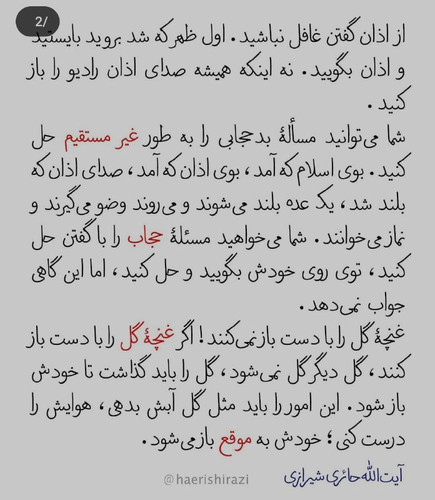 2/
از اذان گفتن غافل نباشید. اول ظهر که شد بروید بایستید
و اذان بگویید. نه اینکه همیشه صدای اذان رادیو را باز
کنید.
شما می‌توانید مسألهٔ بدحجابی را به طور غیر مستقیم حل
کنید. بوی اسلام که آمد، بوی اذان که آمد، صدای اذان که
بلند شد، یک عده بلند می‌شوند و می‌روند وضو می‌گیرند و
نماز می‌خوانند. شما می‌خواهید مسئلهٔ حجاب را با گفتن حل
کنید، توی روی خودش بگویید و حل کنید، اما این گاهی
جواب نمی‌دهد.
غنچهٔ گل را با دست باز نمی‌کنند! اگر غنچهٔ گل را با دست باز
کنند، گل دیگر گل نمی‌شود، گل را باید گذاشت تا خودش
باز شود. این امور را باید مثل گل آبش بدهی، هوایش را
درست کنی؛ خودش به موقع باز می‌شود.
آیت‌الله حائری شیرازی
@haerishirazi